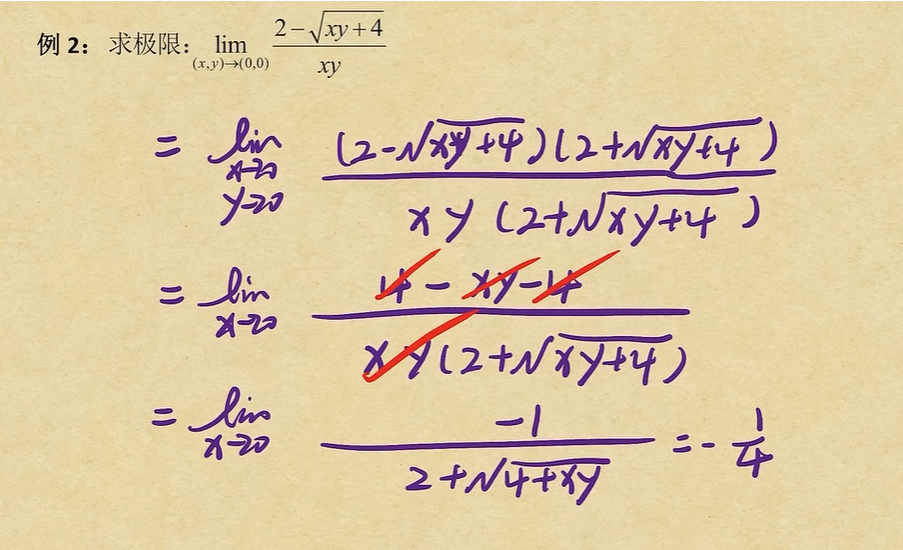 例 2： 求极限： lim_{(x,y)→(0,0)} (2−√(xy+4))/(xy)
= lim_{x→0, y→0} ((2−√(xy+4))(2+√(xy+4)))/(xy(2+√(xy+4)))
= lim_{x→0} (4−xy−4)/(xy(2+√(xy+4)))
= lim_{x→0} (−1)/(2+√(4+xy)) = −1/4